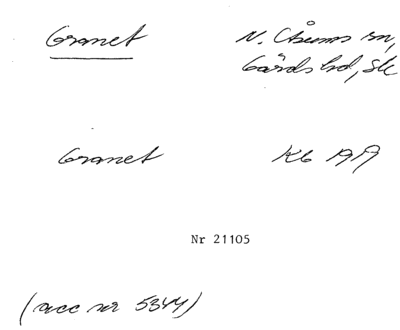 Granet N. Åsums sn,
Gärds hd, Sk
Granet Kb 1919
Nr 21105
(acc nr 5344)